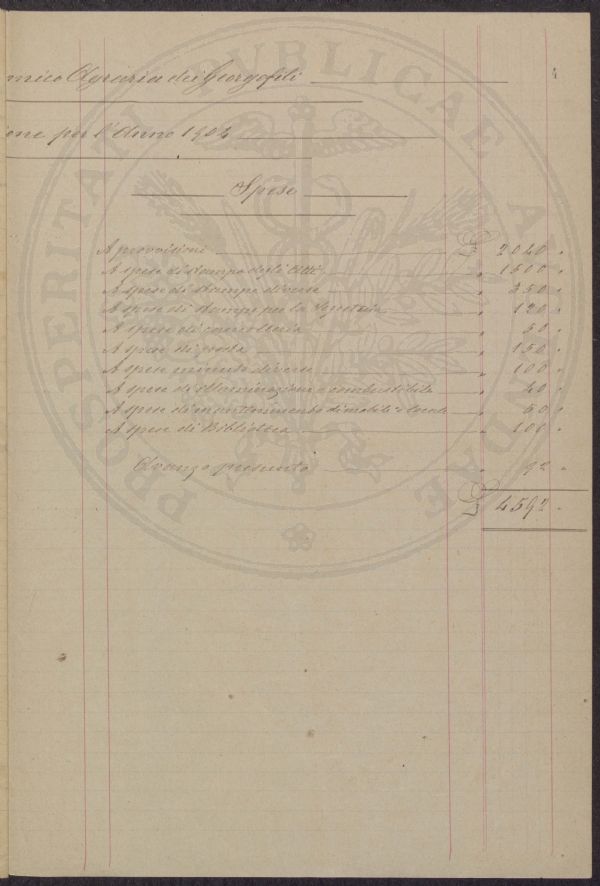 mico Agraria dei Georgofili
one per l'Anno 1904
Spese
A provvisioni L 2040 "
A spese di stampa degli Atti " 1500 "
A spese di stampe diverse " 350 "
A spese di stampe per la Segreteria " 120 "
A spese di cancelleria " 50 "
A spese di posta " 150 "
A spese minute diverse " 100 "
A spese di illuminazione e combustibile " 40 "
A spese di mantenimento di mobili e locale " 50 "
A spese di Biblioteca " 100 "
Avanzo presunto " 92 "
L 4592 "
PROSPERITATI PUBLICAE AUGENDAE